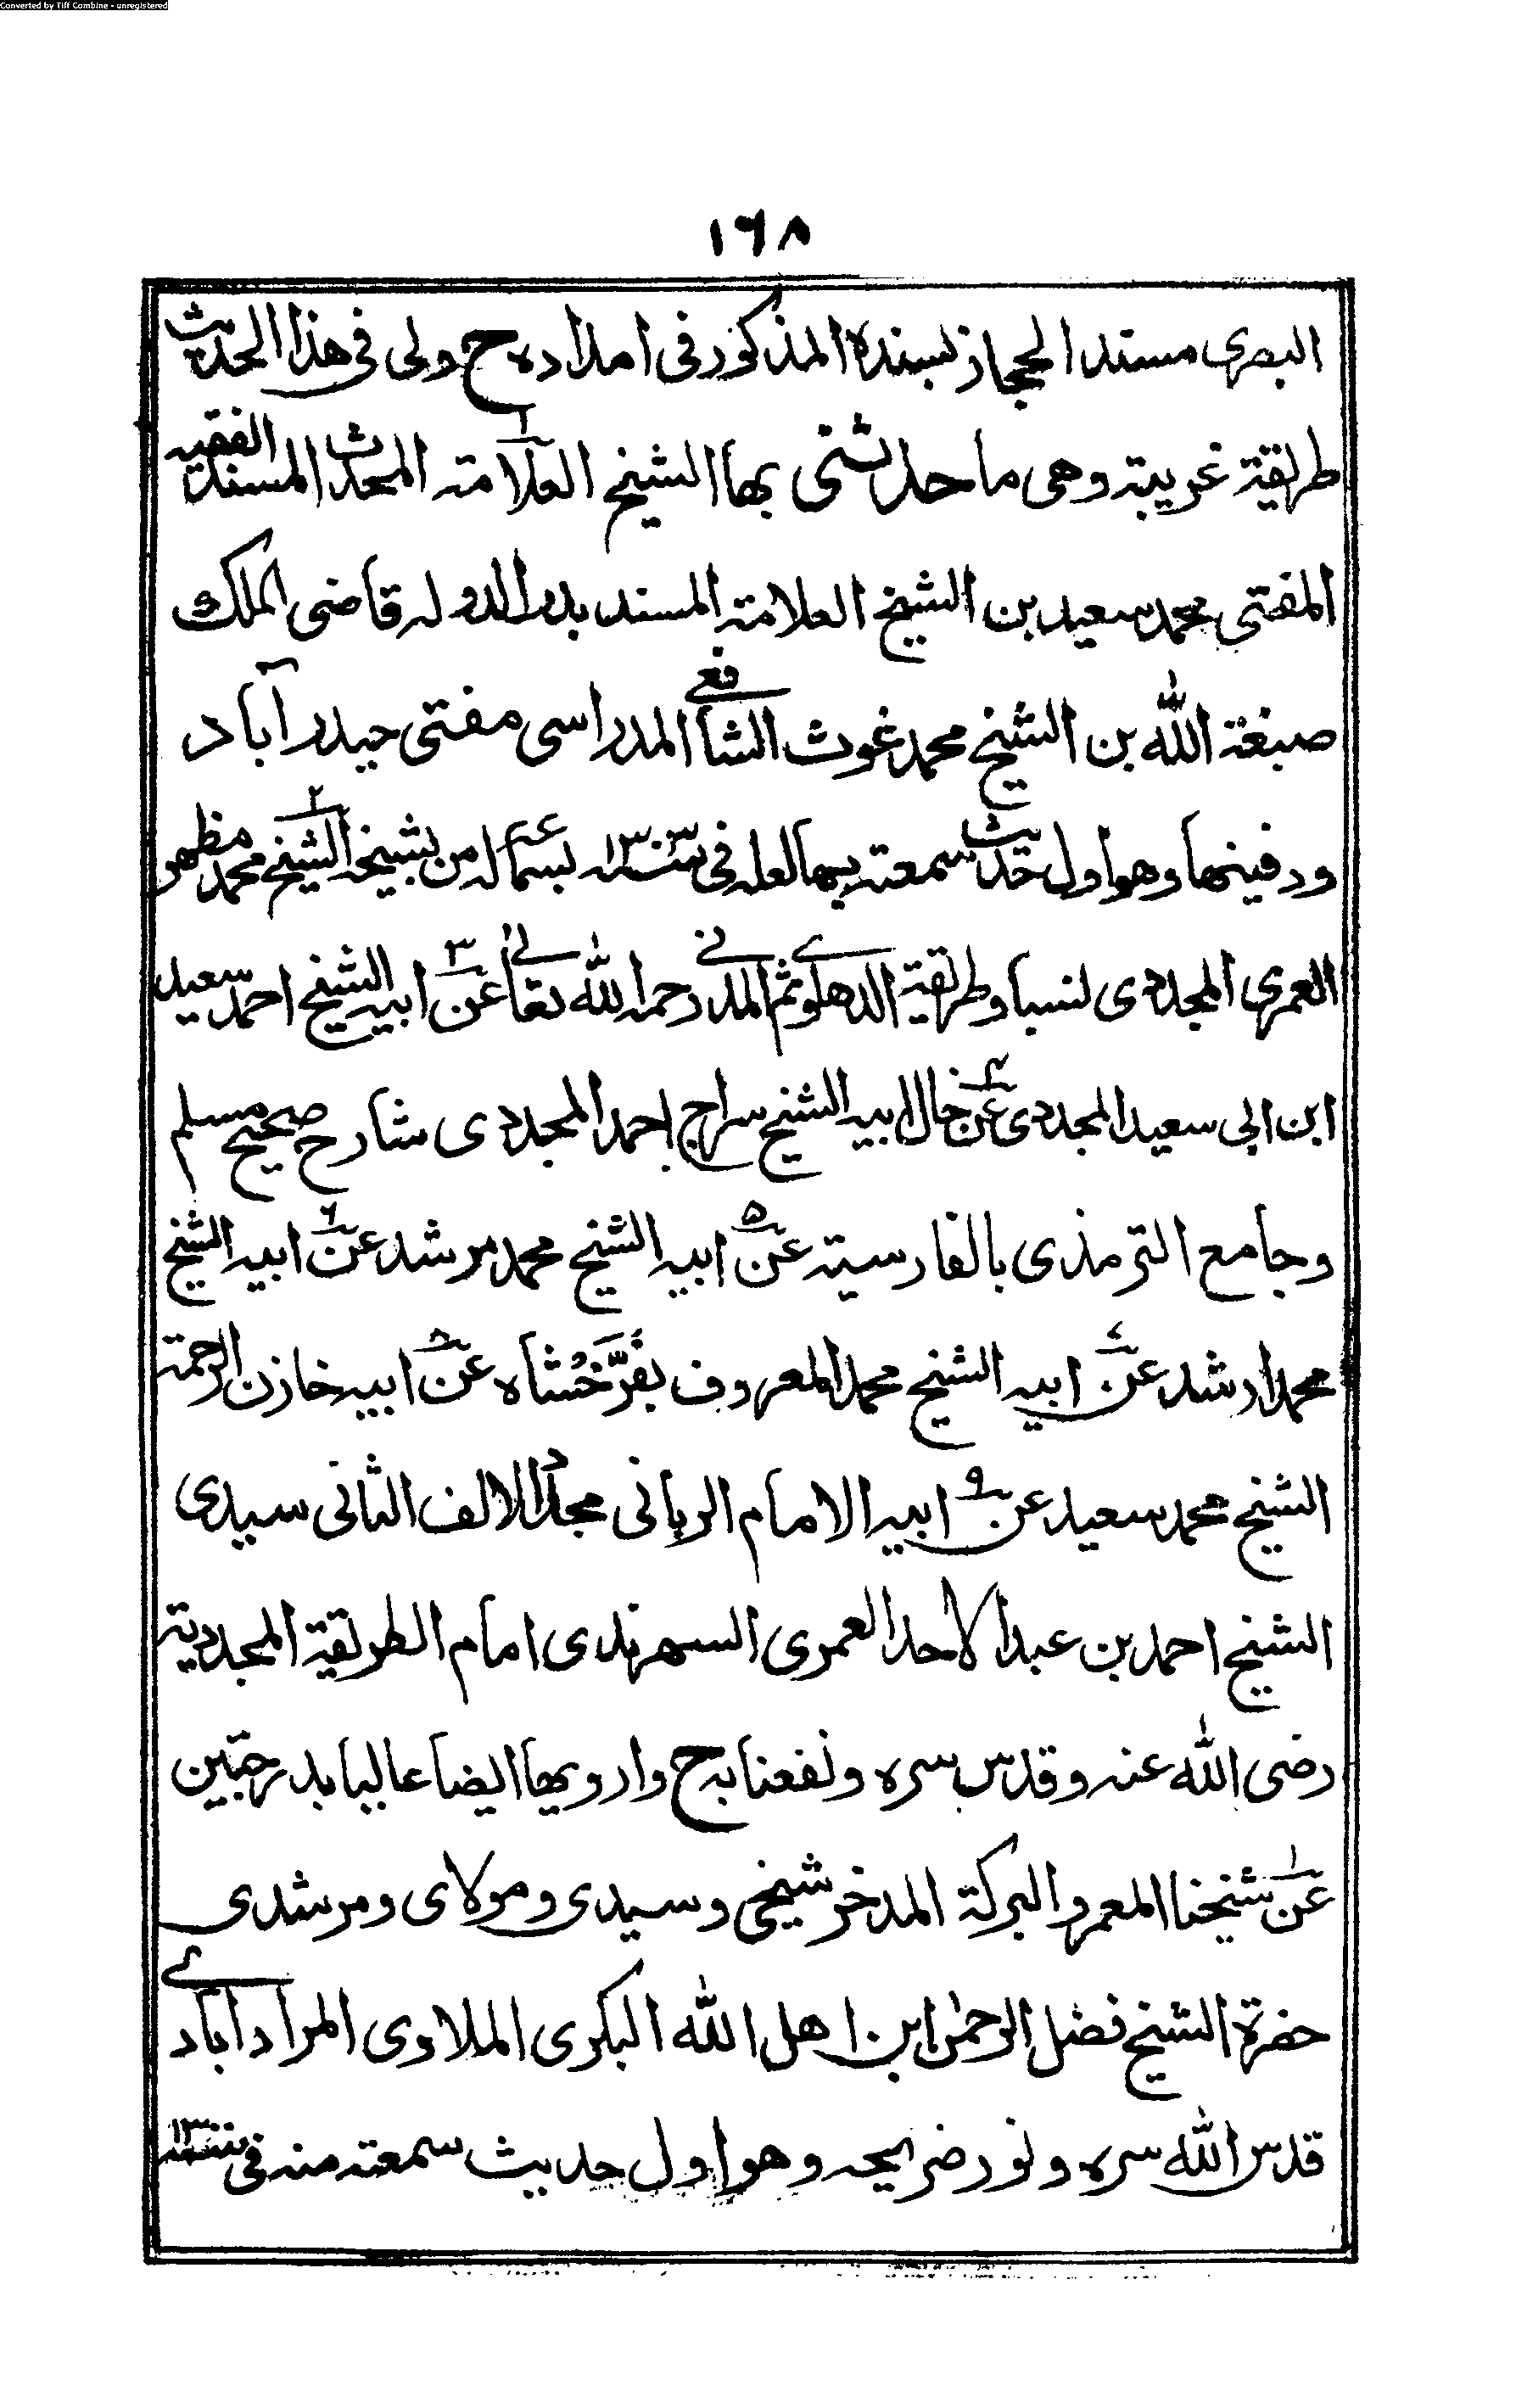 Converted by Tiff Combine - unregistered
١٦٨
البصرى مسند الحجاز بسنده المذكور فى امداده ح ولى فى هذا الحديث
طريقة غريبة وهى ما حدثنى بها الشيخ العلامة المحدث المسند الفقيه
المفتى محمد سعيد بن الشيخ العلامة المسند بدر الدوله قاضى الملك
صبغة الله بن الشيخ محمد غوث الشافعى المدراسى مفتى حيدر آباد
ودفينها وهو اول حديث سمعته فى سنة ١٣٠٣ بسماع له من شيخه الشيخ محمد مظهر
العمرى المجددى نسبا وطريقة الدهلوى ثم المدنى رحمه الله تعالى عن ابيه الشيخ احمد سعيد
ابن ابى سعيد المجددى عن خال ابيه الشيخ سراج احمد المجددى شارح صحيح مسلم
وجامع الترمذى بالفارسية عن ابيه الشيخ محمد مرشد عن ابيه الشيخ
محمد ارشد عن ابيه الشيخ محمد المعروف بفَرُّخْشاه عن ابيه خازن الرحمة
الشيخ محمد سعيد عن ابيه الامام الربانى مجدد الالف الثانى سيدى
الشيخ احمد بن عبد الاحد العمرى السهرندى امام الطريقة المجددية
رضى الله عنه وقدس سره ونفعنا به ح وارويها ايضا عاليا بدرجتين
عن شيخنا المعمر والبركة المدخر شيخى وسيدى ومولاى ومرشدى
حضرة الشيخ فضل الرحمن ابن اهل الله البكرى الملاوى المرادآبادى
قدس الله سره ونور ضريحه وهو اول حديث سمعته منه فى سنة